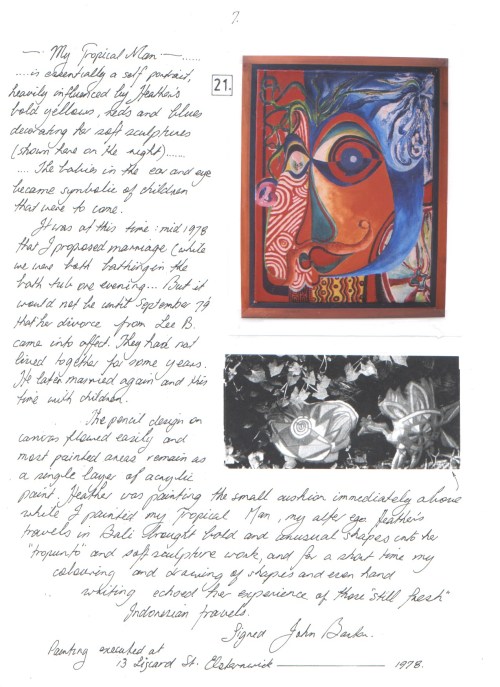 7.
— My Tropical Man — ......
.... is essentially a self portrait,
heavily influenced by Heather's
bold yellows, reds and blues
decorating her soft sculptures
(shown here on the right) ......
.... The babies in the ear and eye
became symbolic of children
that were to come.
It was at this time: mid 1978
that I proposed marriage (while
we were both bathing in the
bath tub one evening... But it
would not be until September 79
that her divorce from Lee B.
came into effect. They had not
lived together for some years.
He later married again and this
time with children.
The pencil design on
canvas flowed easily and
most painted areas remain as
a single layer of acrylic
paint. Heather was painting the small cushion immediately above
while I painted my Tropical Man, my alter ego. Heather's
travels in Bali brought bold and unusual shapes into her
"trapunto" and soft sculpture work, and for a short time my
colouring and drawing of shapes and even hand
writing echoed her experience of those "still fresh"
Indonesian travels.
Signed John Barker.
Painting executed at
13 Lizard St. Elsternwick — 1978.
21.